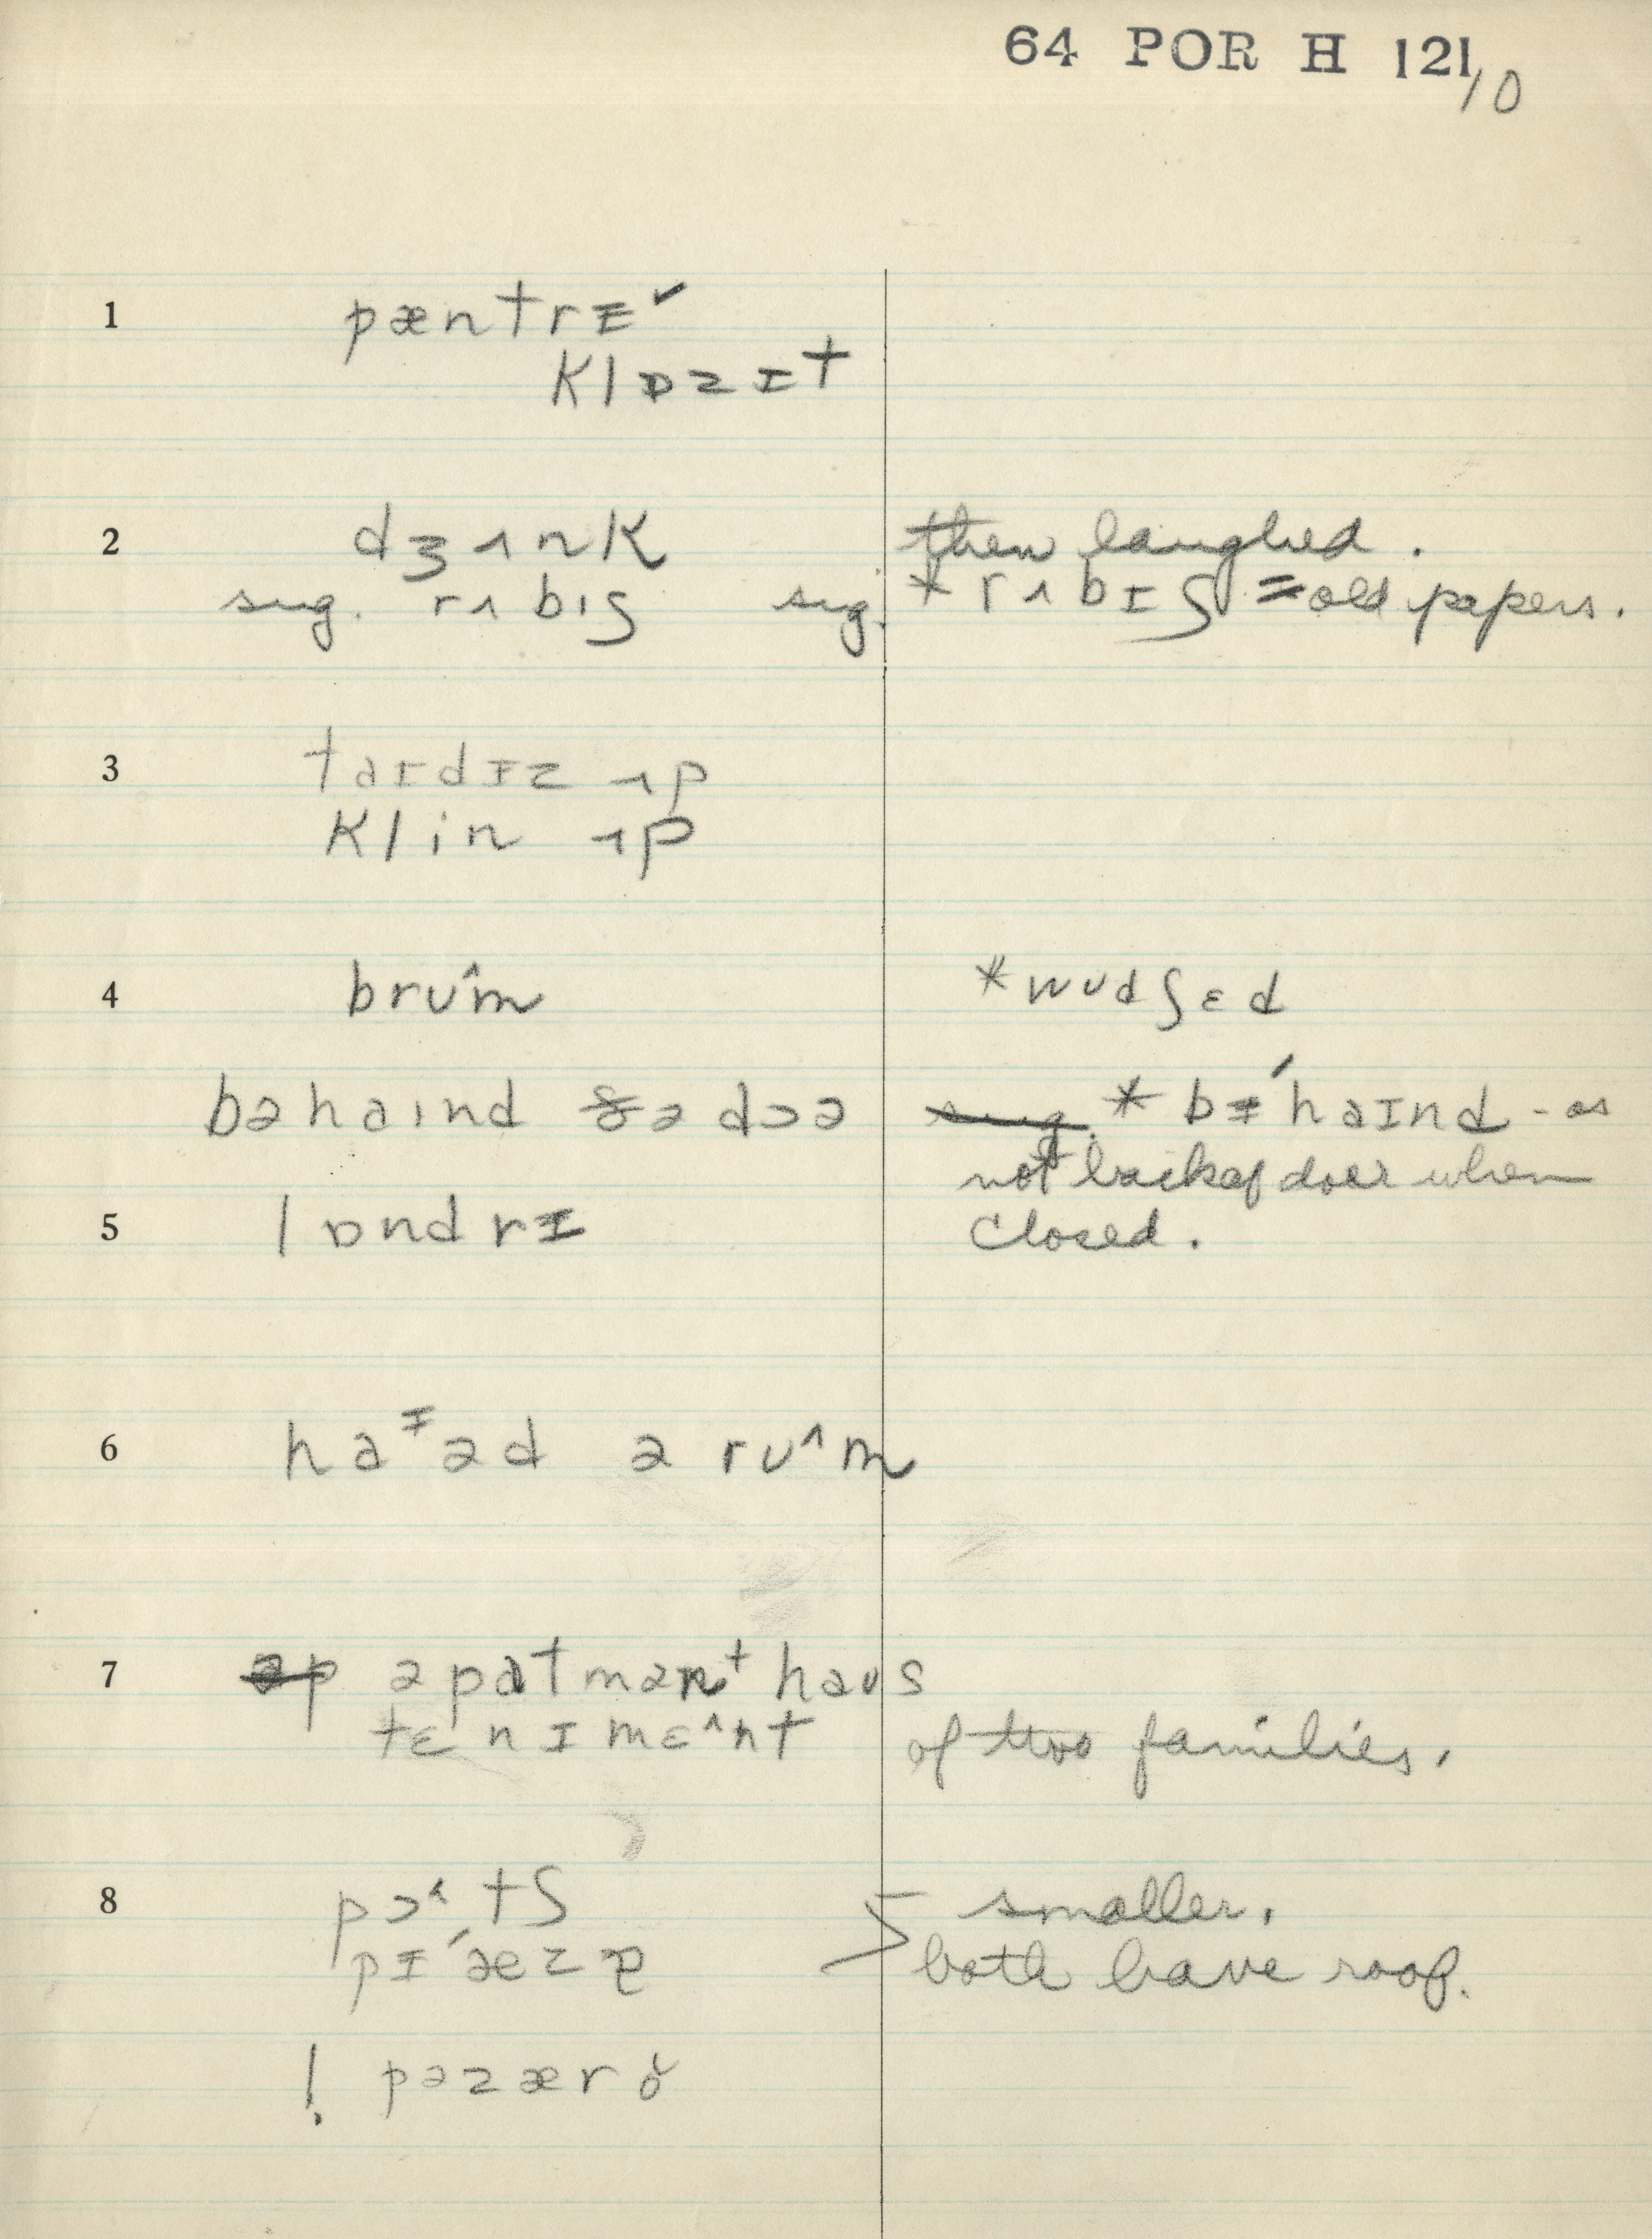 64 POR H 121/10
1 pæntrɪ̵ˇ
klɒzɪt
2 dʒʌnk then laughed.
sug. rʌbɪʃ sug. * rʌbɪʃ = old papers.
3 taɪdɪz ʌp
klin ʌp
4 brʊ^m * wʊdʃɛd
bəhaɪnd ðə dɔə * bɪ̵ˊhaɪnd - as
not back of door when
5 lɒndrɪ̵ closed.
6 haᵻəd ə rʊ^m
7 əpatmənᵗ haʊs
tɛnɪmɛ^nt of two families.
8 pɔ˂tʃ > smaller.
pɪˊæzə both have roof.
! pəzærə